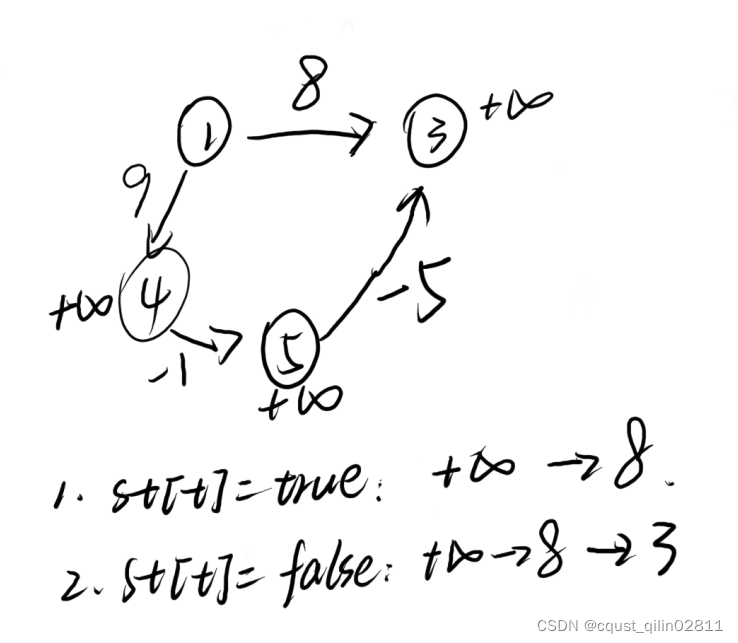 8
1
3
+∞
9
4
+∞
-5
-1
5
+∞
1. st[t]=true: +∞ → 8.
2. st[t]= false: +∞→8→3
CSDN @cqust_qilin02811